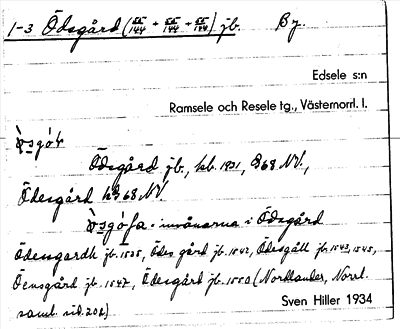 1-3 Ödsgård (55/144 + 55/144 + 55/144) jb. By.
Edsele s:n
Ramsele och Resele tg., Västernorrl. l.
Ödsgård jb., kb. 1931, 868 NV.,
Ödesgård 868 NV.
i Ödsgård
Ödensgardh jb. 1535, Ödes gård jb. 1542, Ödesgåll jb. 1543, 1545,
Öensgård jb. 1547, Ödesgård jb. 1550 (Nordlander, Norrl.
saml. sid. 202)
Sven Hiller 1934